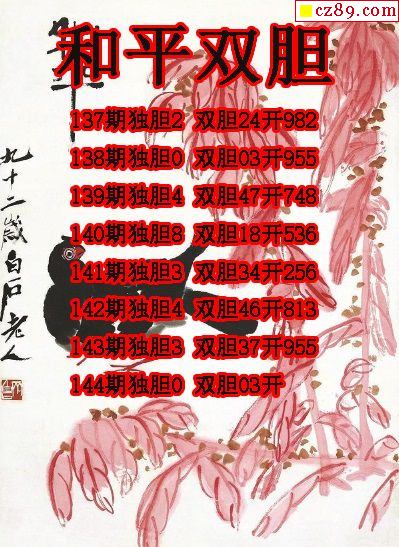 cz89.com
和平双胆
137期独胆2 双胆24开982
138期独胆0 双胆03开955
139期独胆4 双胆47开748
140期独胆8 双胆18开536
141期独胆3 双胆34开256
142期独胆4 双胆46开813
143期独胆3 双胆37开955
144期独胆0 双胆03开
九十二岁白石老人